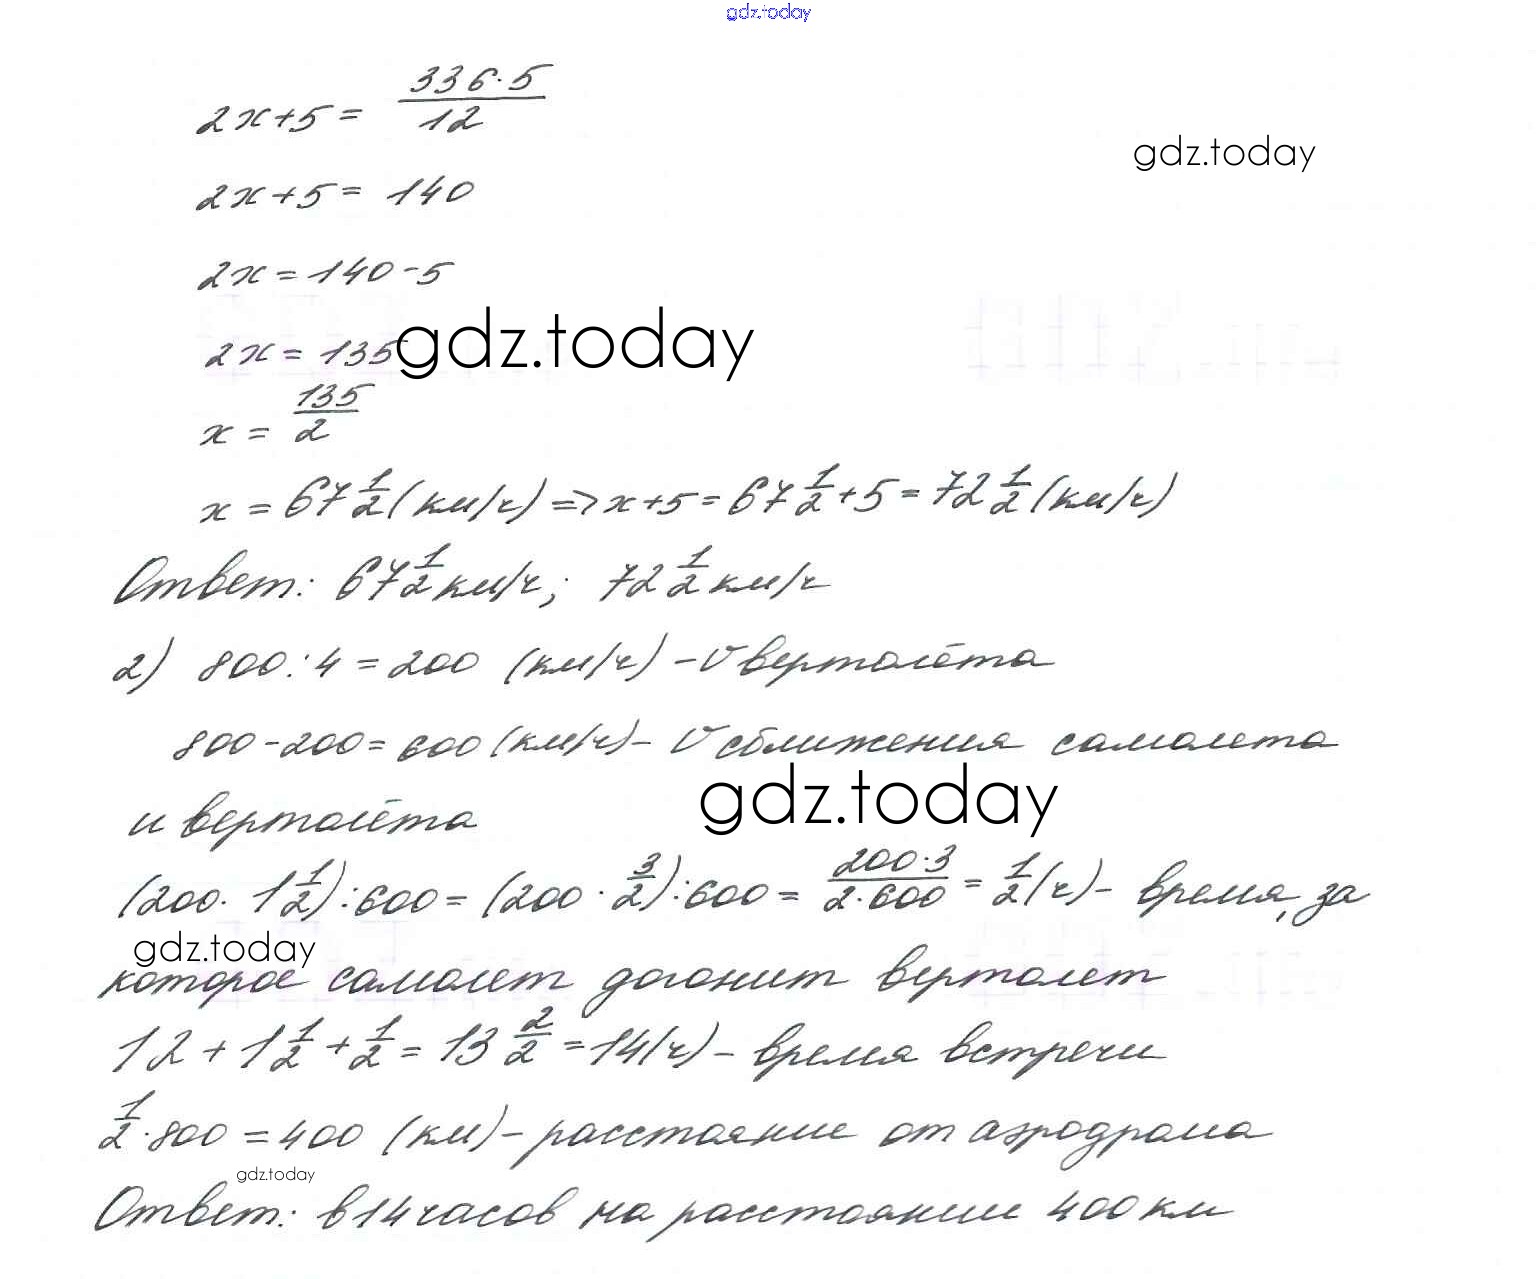 gdz.today
2x+5 = 336·5/12
gdz.today
2x+5 = 140
2x = 140-5
2x = 135
gdz.today
x = 135/2
x = 67 1/2 (км/ч) => x+5 = 67 1/2 + 5 = 72 1/2 (км/ч)
Ответ: 67 1/2 км/ч; 72 1/2 км/ч
2) 800:4 = 200 (км/ч) - V вертолёта
800-200 = 600 (км/ч) - V сближения самолета
и вертолёта
gdz.today
(200 · 1 1/2):600 = (200 · 3/2):600 = 200·3/2·600 = 1/2 (ч) - время, за
gdz.today
которое самолет догонит вертолет
12 + 1 1/2 + 1/2 = 13 2/2 = 14 (ч) - время встречи
1/2 · 800 = 400 (км) - расстояние от аэродрома
gdz.today
Ответ: в 14 часов на расстоянии 400 км